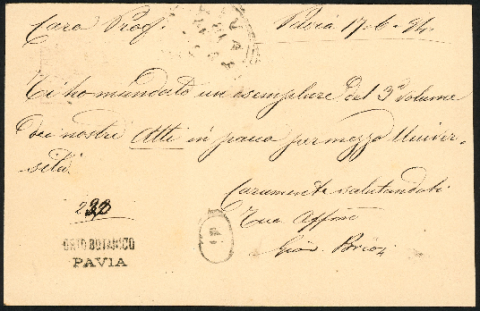 Caro Prof. Pavia 17-6-94.
Ti ho mandato un esemplare del 3º volume
dei nostri Atti in pacco per mezzo Univer-
sità.
Caramente salutandoti
Tuo Affmo
Giov. Briosi
ORTO BOTANICO
PAVIA